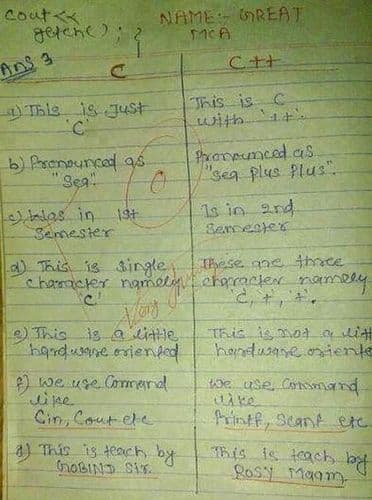 cout <<
getche() ; }
NAME:- GREAT
MCA
Ans 3
C
C++
a) This is Just
'C'
This is C
with '++'.
b) Pronounced as
"Sea".
Pronounced as
"Sea plus plus".
0
c) Was in 1st
Semester
Is in 2nd
Semester
d) This is single
character namely
'C'
These are three
character namely
C, +, +.
Very
e) This is a little
hardware oriented
This is not a litt
hardware oriente
f) we use Command
like
Cin, Cout etc
we use Command
like
Printf, Scanf etc
g) This is teach by
GOBIND Sir.
This is teach by
ROSY Maam.